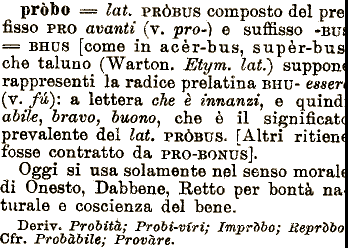 pròbo = lat. PRÒBUS composto del pre
fisso PRO avanti (v. pro-) e suffisso -BUS
= BHUS [come in acèr-bus, supèr-bus
che taluno (Warton. Etym. lat.) suppon
rappresenti la radice prelatina BHU- esser
(v. fú): a lettera che è innanzi, e quind
abile, bravo, buono, che è il significat
prevalente del lat. PRÒBUS. [Altri ritien
fosse contratto da PRO-BONUS].
Oggi si usa solamente nel senso moral
di Onesto, Dabbene, Retto per bontà na
turale e coscienza del bene.
Deriv. Probità; Probi-viri; Impròbo; Repròbo
Cfr. Probàbile; Provàre.